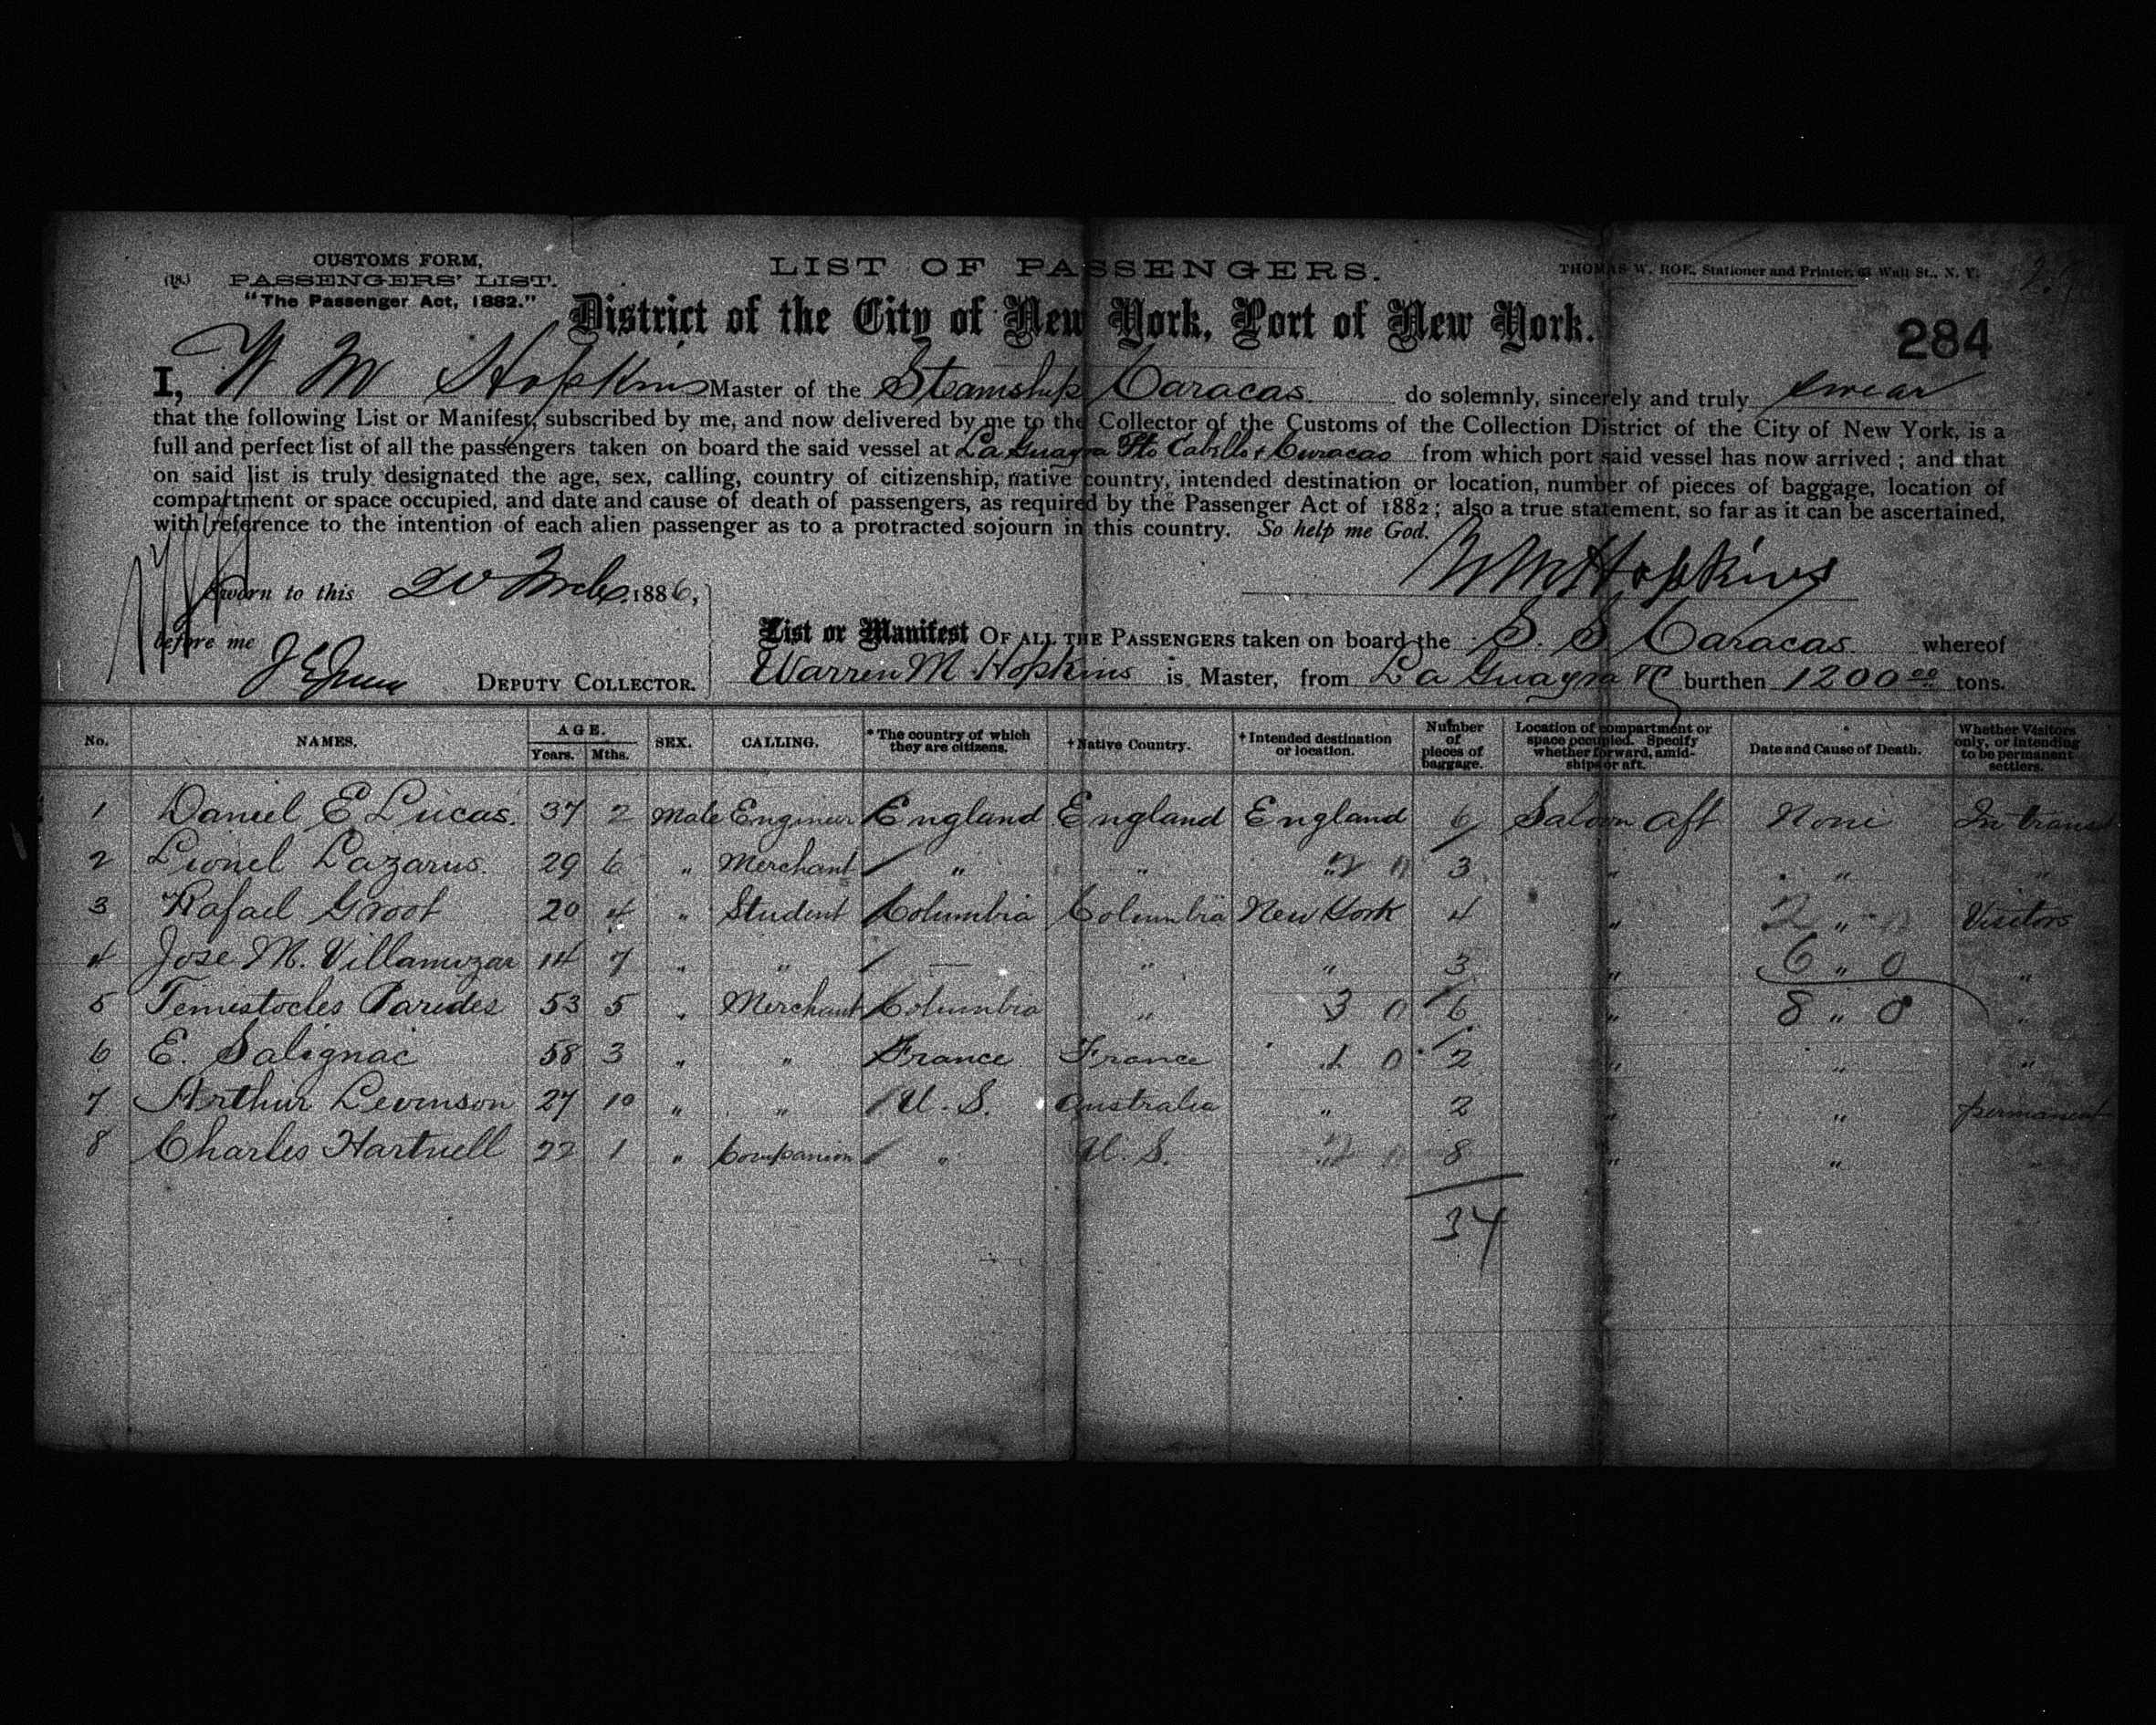 CUSTOMS FORM,
(18.) PASSENGERS' LIST.
"The Passenger Act, 1882."
LIST OF PASSENGERS.
THOMAS W. ROE, Stationer and Printer, 63 Wall St., N. Y.
District of the City of New York, Port of New York.
284
I, W M Hopkins Master of the Steamship Caracas do solemnly, sincerely and truly swear
that the following List or Manifest, subscribed by me, and now delivered by me to the Collector of the Customs of the Collection District of the City of New York, is a
full and perfect list of all the passengers taken on board the said vessel at La Guayra Pto Cabello & Curacao from which port said vessel has now arrived; and that
on said list is truly designated the age, sex, calling, country of citizenship, native country, intended destination or location, number of pieces of baggage, location of
compartment or space occupied, and date and cause of death of passengers, as required by the Passenger Act of 1882; also a true statement, so far as it can be ascertained,
with reference to the intention of each alien passenger as to a protracted sojourn in this country. So help me God.
W M Hopkins
Sworn to this 20 1886,
before me
DEPUTY COLLECTOR.
List or Manifest OF ALL THE PASSENGERS taken on board the S. S. Caracas whereof
Warren M. Hopkins is Master, from La Guayra burthen 1200 00 tons.
No. NAMES. AGE. Years. Mths. SEX. CALLING. * The country of which they are citizens. † Native Country. † Intended destination or location. Number of pieces of baggage. Location of compartment or space occupied. Specify whether forward, amidships or aft. Date and Cause of Death. Whether Visitors only, or intending to be permanent settlers.
1 Daniel E Lucas. 37 2 Male Engineer England England England 6 Saloon aft None In transit
2 Lionel Lazarus. 29 6 " Merchant " " " 2 0 3 " " "
3 Rafael Groot 20 4 " Student Columbia Columbia New York 4 " 2 " 0 Visitors
4 Jose M. Villamizar 14 7 " " — " " 3 " 6 " 0 "
5 Temistocles Paredes 53 5 " Merchant Columbia " 3 0 6 " 8 " 0 "
6 E. Salignac 58 3 " " France France 1 0 2 " " "
7 Arthur Levinson 27 10 " " U. S. Australia " 2 " " permanent
8 Charles Hartnell 22 1 " Companion " U. S. 2 0 8 " " "
34